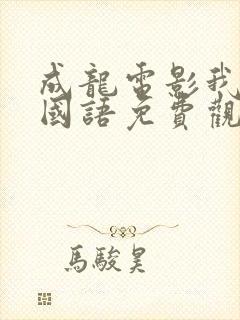 成龍電影我
國語免費觀
馬駿昊